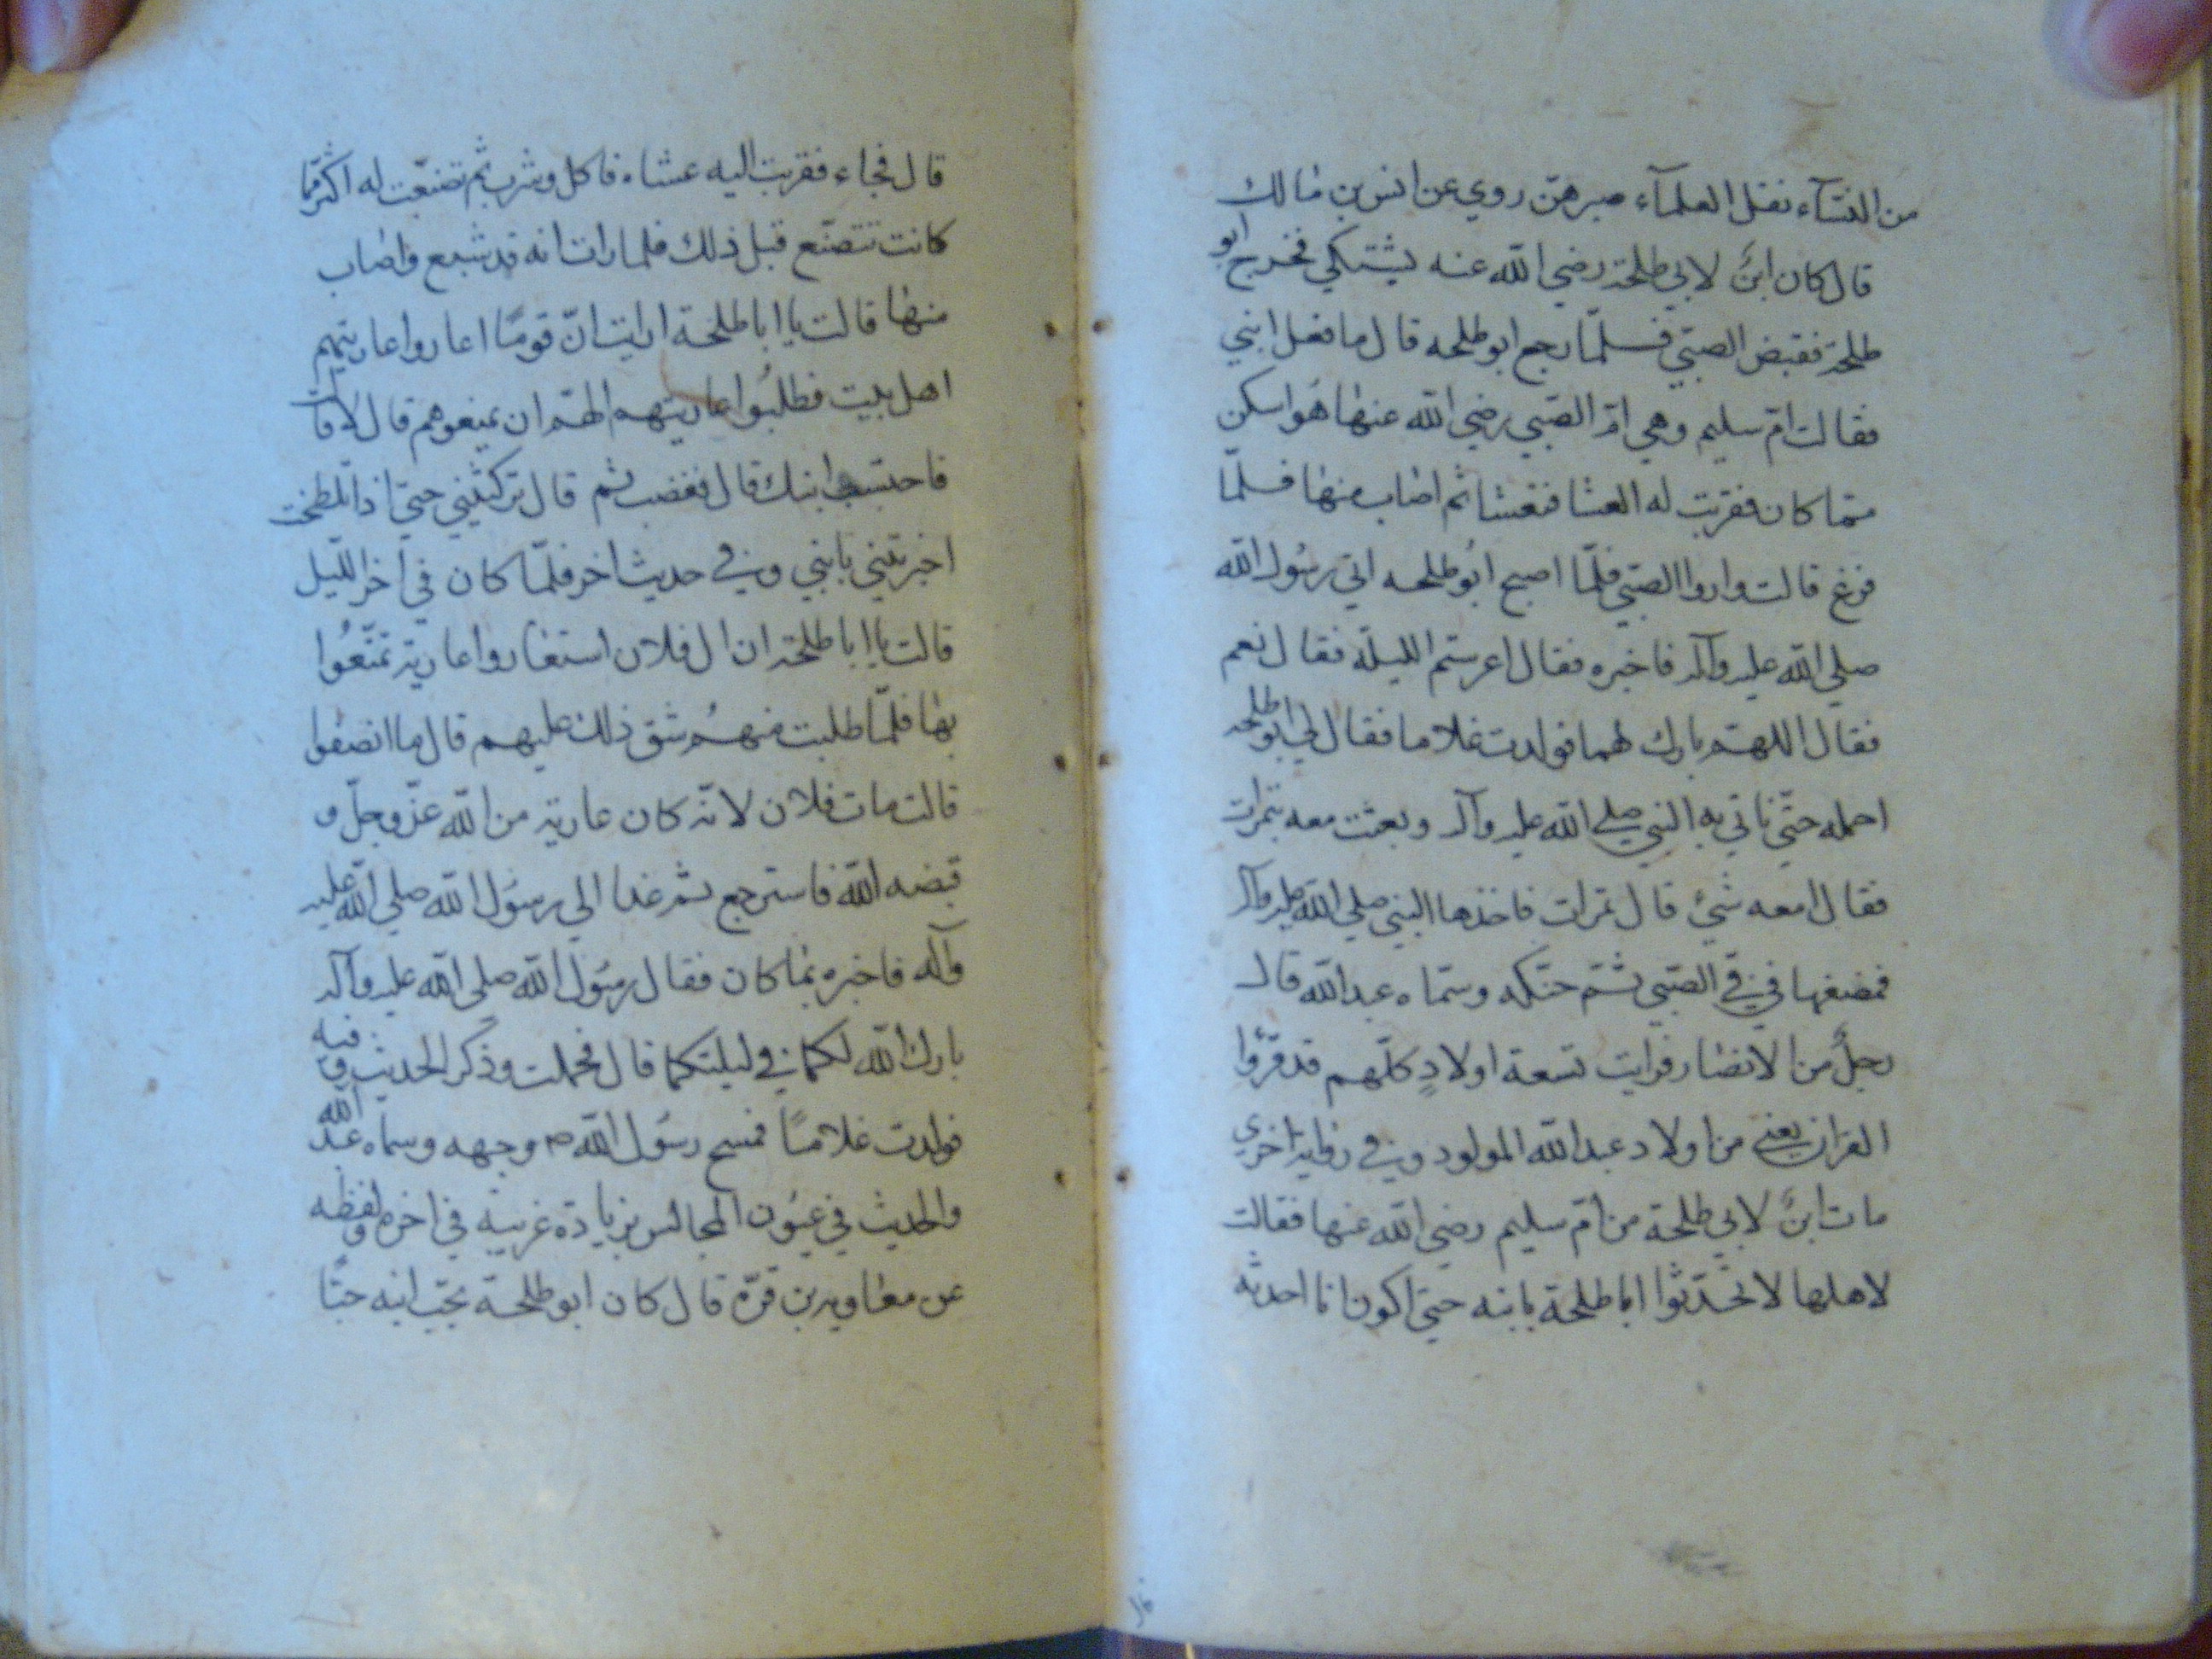 من النسآء نقل العلمآء صبرهنّ روي عن انس بن مالك
قال كان ابنٌ لابي طلحة رضي الله عنه يشتكي فخرج ابو
طلحة فقبض الصبيّ فسلمّا رجع ابو طلحه قال ما فعل ابني
فقالت امّ سليم وهي امّ الصّبي رضي الله عنها هُو اسكن
ممّا كان فقربت له العشا فتعشا ثم اصاب منها فسلمّا
فرغ قالت واروا الصّبي فلمّا اصبح ابُو طلحه اتي رسُول الله
صلي الله عليه وآله فاخبره فقال اعرستم الليلة فقال نعم
فقال اللهمّ بارك لهما فولدت غلاما فقال لي ابو طلحه
احمله حتّي تاتي به النبي صلي الله عليه وآله وبعثت معه بتمرات
فقال امعه شيئ قال تمرات فاخذها النبي صلي الله عليه وآله
فمضغها في في الصّبي ثمّ حنّكه وسمّاه عبد الله قال
رجلٌ من الانصار فرايت تسعة اولادٍ كلّهم قد قرؤا
القران يعني من اولاد عبد الله المولود وفي رواية اخري
مات ابنٌ لابي طلحة من امّ سليم رضي الله عنها فقالت
لاهلها لا تحدّثوا ابا طلحة بابنه حتي اكون انا احدثه
قال فجاء فقربت اليه عشاء فاكل وشرب ثم تصنّعت له اكثر ممّا
كانت تتصنّع قبل ذلك فلما رات انه قد شبع واصاب
منها قالت يا ابا طلحة ارايت انّ قومًا اعاروا عاريتهم
اهل بيت فطلبُوا عاريتهم الهم ان يمنعوهم قال لا قالت
فاحتسب ابنك قال فغضب ثم قال تركتيني حتيّ اذا تلطخت
اخبرتيني بابني وفي حديث اخر فلمّا كان في اخر اللّيل
قالت يا ابا طلحة ان ال فلان استعاروا عارية تمتّعُوا
بها فلمّا طلبت منهُم شق ذلك عليهم قال ما انصفوا
قالت مات فلان لانّه كان عارية من الله عزّ وجلّ و
قبضه الله فاسترجع ثم غدا الي رسُول الله صلي الله عليه
وآله فاخبره بما كان فقال رسُول الله صلي الله عليه وآله
بارك الله لكما في ليلتكما قال فحملت وذكر الحديث وفيه
فولدت غلامًا فمسح رسُول الله ص وجهه وسماه عبد الله
والحديث في عيُون المجالس بزيادة غريبة في اخره ولفظه
عن معاوية بن قرّة قال كان ابو طلحة يحبّ ابنه حبًّا